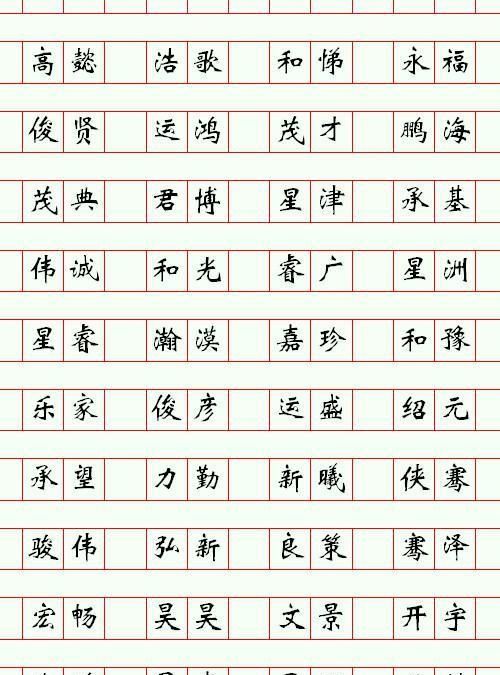 高懿 浩歌 和悌 永福
俊贤 运鸿 茂才 鹏海
茂典 君博 星津 承基
伟诚 和光 睿广 星洲
星睿 瀚漠 嘉珍 和豫
乐家 俊彦 运盛 绍元
承望 力勤 新曦 侠骞
骏伟 弘新 良策 骞泽
宏畅 昊昊 文景 开宇